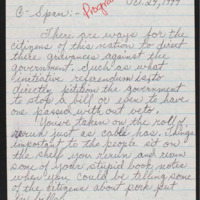 Oct. 29, 1999
Program
C-Span:-
There are ways for the
citizens of this nation to direct
there grievances against the
government, such as what
initiative referendum is, to
directly petition the government
to stop a bill or even to have
one passed with out veto.
You've taken on the roll of
rerun just as cable has. Things
important to the people sit on
the shelf you rerun and rerun
some of your stupid book notes
when you could be telling some
of the citizens about pork put